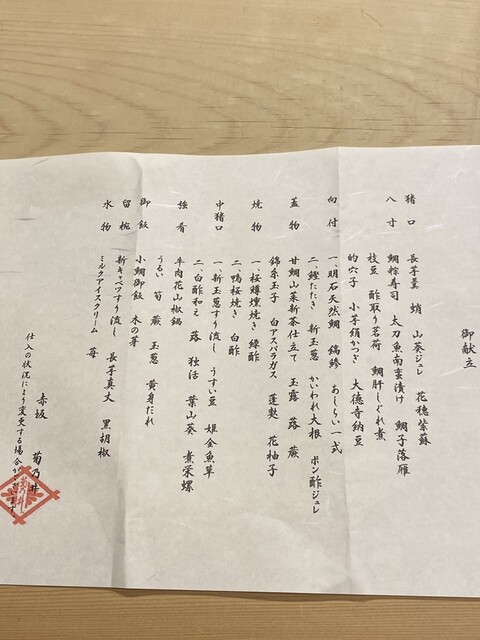 御献立
猪口 長芋羹 蛸 山葵ジュレ 花穂紫蘇
八寸 鯛粽寿司 太刀魚南蛮漬け 鯛子落雁
枝豆 酢取り茗荷 鯛肝しぐれ煮
的穴子 小芋絹かつぎ 大徳寺納豆
向付 一、明石天然鯛 縞鯵 あしらい一式
二、鰹たたき 新玉葱 かいわれ大根 ポン酢ジュレ
蓋物 甘鯛山菜新茶仕立て 玉露 蕗 蕨
錦糸玉子 白アスパラガス 蓬麩 花柚子
焼物 一、桜鱒燻焼き 緑酢
二、鴨桜焼き 白酢
中猪口 一、新玉葱すり流し うすい豆 姫金魚草
二、白酢和え 蕗 独活 葉山葵 煮栄螺
強肴 牛肉花山椒鍋
うるい 筍 蕨 玉葱 黄身だれ
御飯 小鯛御飯 木の芽
留椀 新キャベツすり流し 長芋真丈 黒胡椒
水物 ミルクアイスクリーム 苺
赤坂 菊乃井
仕入の状況により変更する場合が